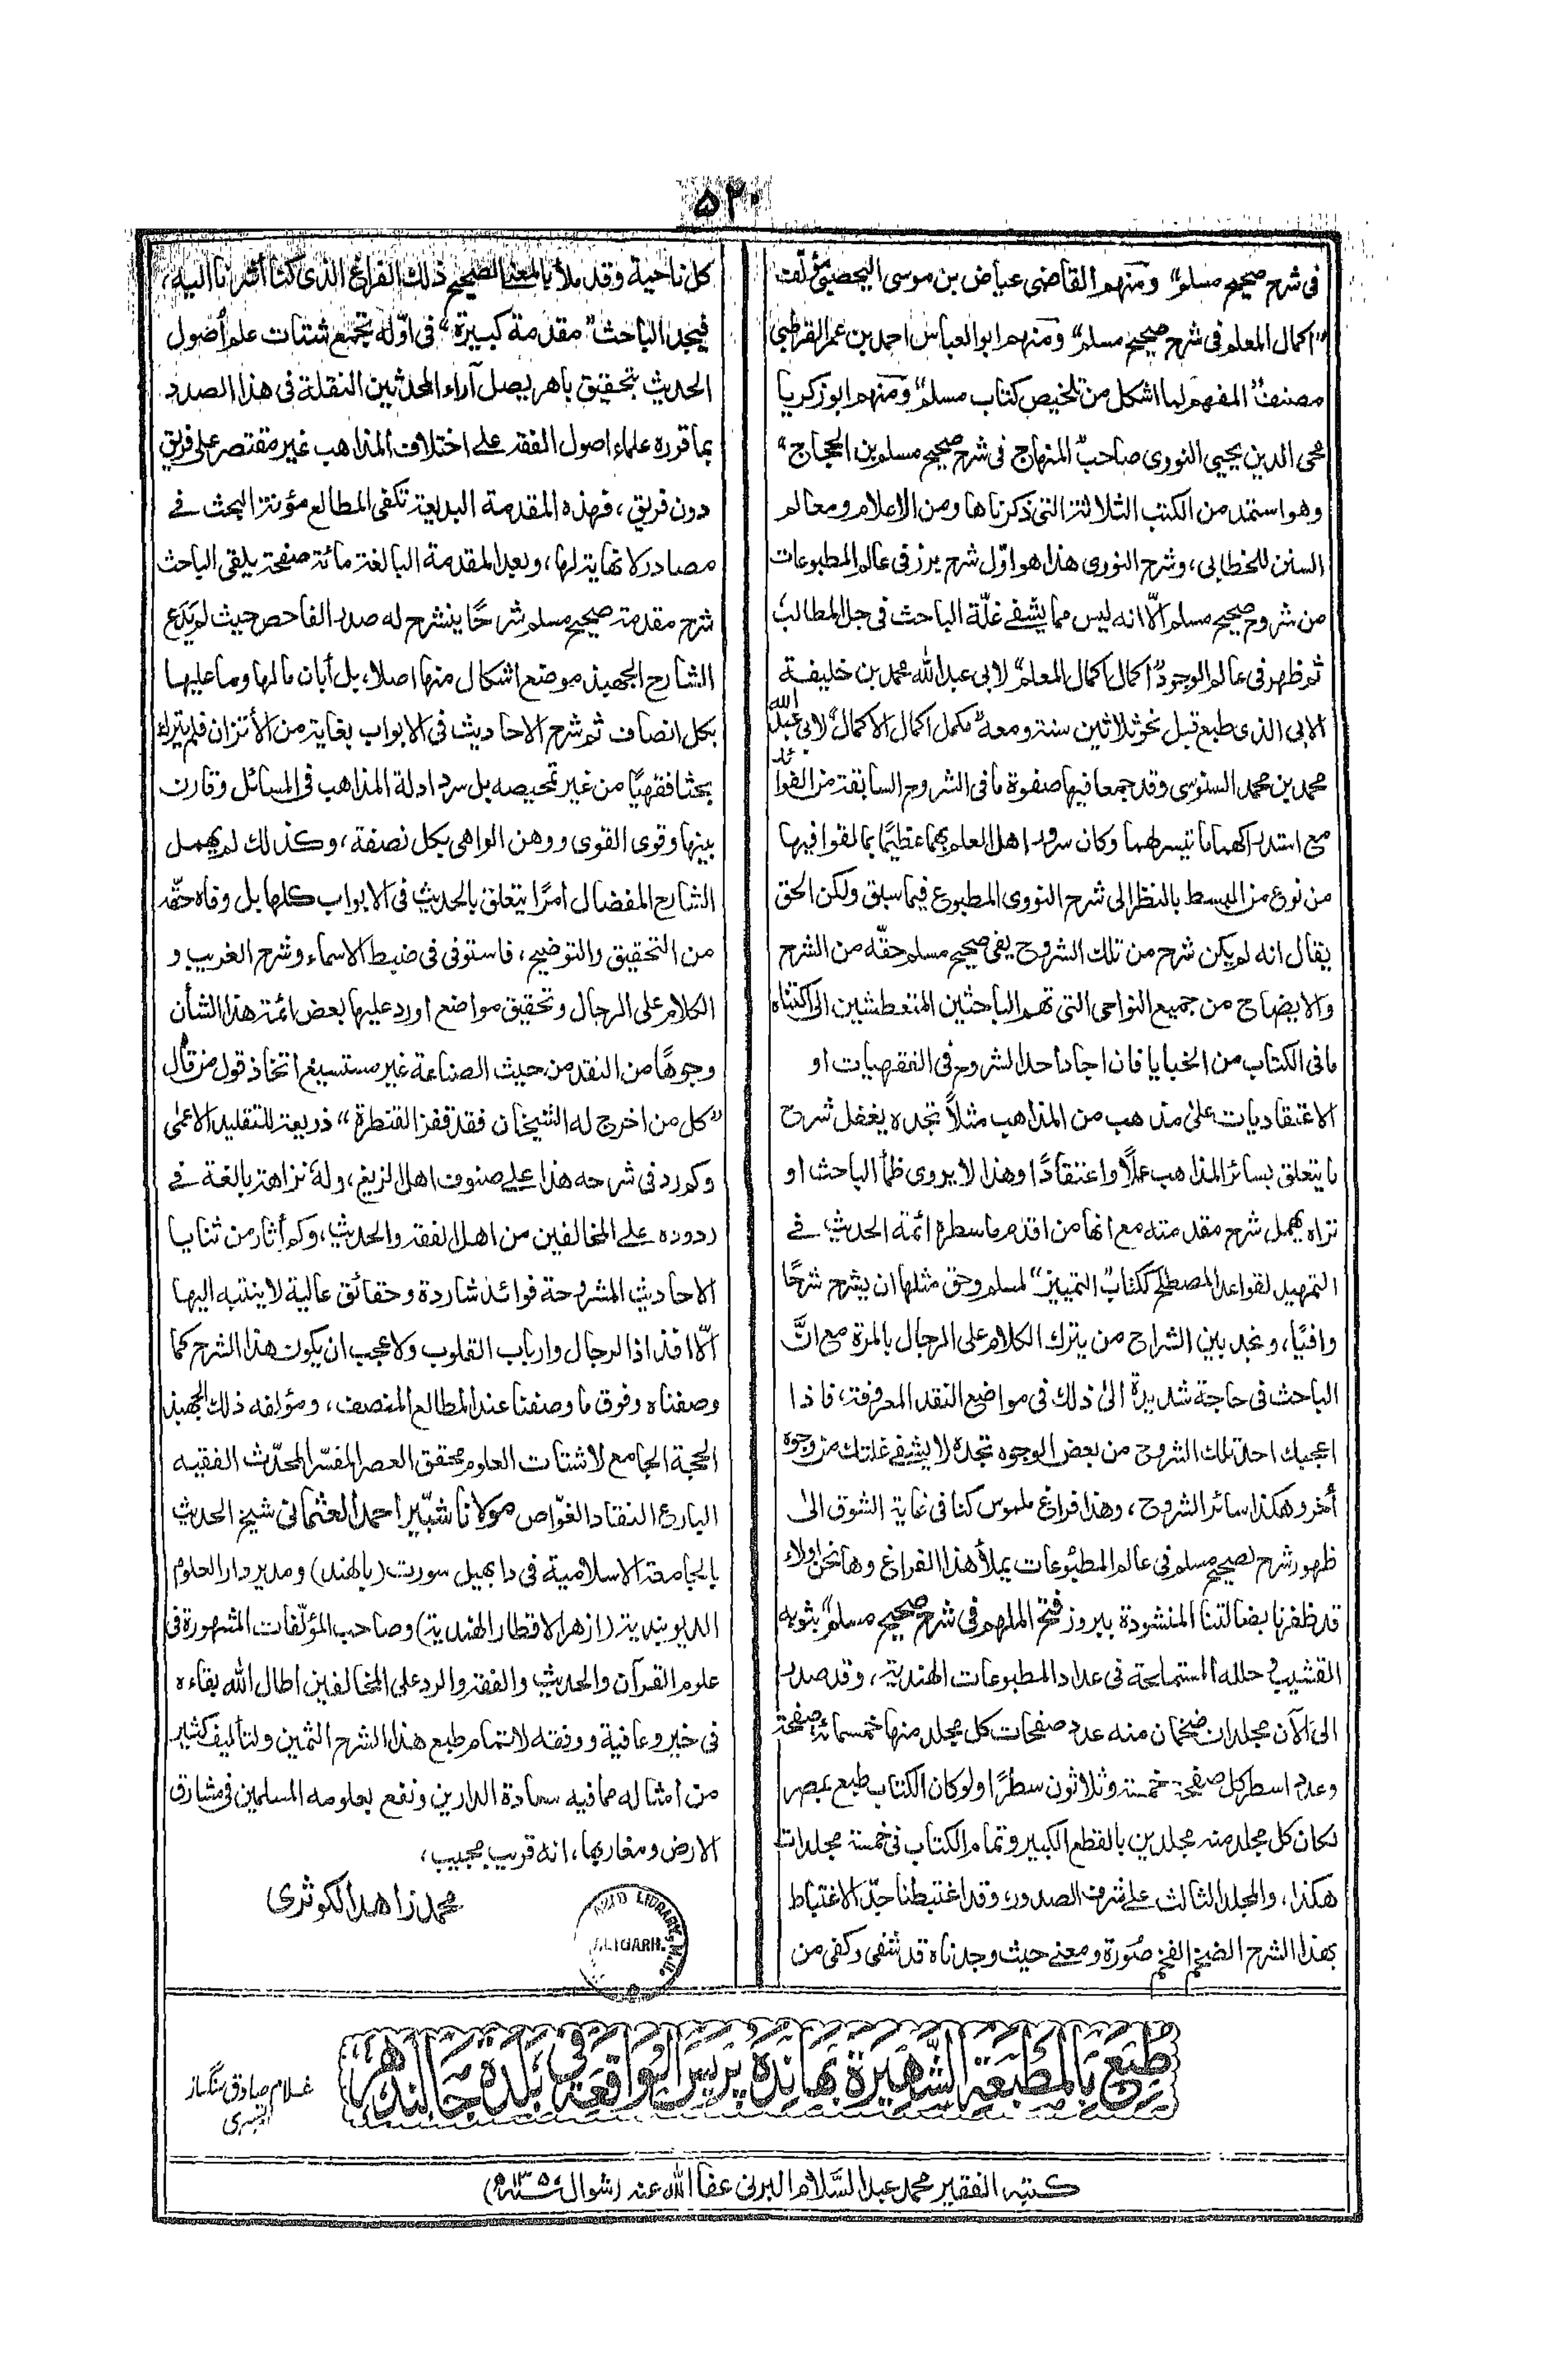 ۵۲۰
فى شرح صحيح مسلم" ومنهم القاضى عياض بن موسى اليحصبى مؤلف
"اكمال المعلم فى شرح صحيح مسلم" ومنهم ابو العباس احمد بن عمر القرطبى
مصنف "المفهم لما اشكل من تلخيص كتاب مسلم" ومنهم ابو زكريا
محى الدين يحيى النووى صاحب "المنهاج فى شرح صحيح مسلم بن الحجاج"
وهو استمد من الكتب الثلاثة التى ذكرناها ومن الاعلام ومعالم
السنن للخطابى، وشرح النووى هذا هو اوّل شرح برز فى عالم المطبوعات
من شروح صحيح مسلم الّا انه ليس مما يشفى غلّة الباحث فى جل المطالب،
ثم ظهر فى عالم الوجود "اكمال اكمال المعلم" لابى عبد الله محمد بن خليفة
الابى الذى طبع قبل نحو ثلاثين سنة ومعه "مكمل اكمال الاكمال" لابى عبد الله
محمد بن محمد السنوسى وقد جمعا فيها صفوة ما فى الشروح السابقة من الفوائد
مع استدراكهما ما تيسر لهما وكان سرور اهل العلم بهما عظيمًا بما لقوا فيها
من نوع من البسط بالنظر الى شرح النووى المطبوع فيما سبق ولكن الحق
يقال انه لم يكن شرح من تلك الشروح يفى صحيح مسلم حقّه من الشرح
والايضاح من جميع النواحى التى تهم الباحثين المتعطشين الى اكتناه
ما فى الكتاب من الخبايا فان اجاد احد الشروح فى الفقهيات او
الاعتقاديات على مذهب من المذاهب مثلاً تجده يغفل شرح
ما يتعلق بسائر المذاهب عملًا واعتقادًا وهذا لا يروى ظمأ الباحث او
تراه يهمل شرح مقدمته مع انها من اقدم ما سطره ائمة الحديث فى
التمهيد لقواعد المصطلح ككتاب "التمييز" لمسلم وحق مثلها ان يشرح شرحًا
وافيًا، ونجد بين الشراح من يترك الكلام على الرجال بالمرة مع انَّ
الباحث فى حاجة شديدة الى ذلك فى مواضع النقد المعروفة، فاذا
اعجبك احد تلك الشروح من بعض الوجوه تجده لا يشفى غلتك من وجوه
أخر وهكذا سائر الشروح، وهذا فراغ ملموس كنا فى غاية الشوق الى
ظهور شرح لصحيح مسلم فى عالم المطبوعات يملأ هذا الفراغ وها نحن اولاء
قد ظفرنا بضالتنا المنشودة ببروز "فتح الملهم فى شرح صحيح مسلم" بثوبه
القشيب وحلله المستملحة فى عداد المطبوعات الهندية، وقد صدر
الى الآن مجلدان ضخمان منه عدد صفحات كل مجلد منها خمسمائة صفحة
وعدد اسطر كل صفحة خمسة وثلاثون سطرًا ولو كان الكتاب طبع بمصر
لكان كل مجلد منه مجلدين بالقطع الكبير وتمام الكتاب فى خمسة مجلدات
هكذا، والمجلد الثالث على شرف الصدور، وقد اغتبطنا جدّ الاغتباط
بهذا الشرح الضخم الفخم صُورة ومعنى حيث وجدناه قد شفى وكفى من
كل ناحية وقد ملأ بالمعنى الصحيح ذلك الفراغ الذى كنا أشرنا اليه،
فيجد الباحث "مقدمة كبيرة" فى اوّله تجمع شتات علم أصول
الحديث بتحقيق باهر يصل آراء المحدثين النقلة فى هذا الصدد
بما قرره علماء اصول الفقه على اختلاف المذاهب غير مقتصر على فريق
دون فريق، فهذه المقدمة البديعة تكفى المطالع مؤنة البحث فى
مصادر لا نهاية لها، وبعد المقدمة البالغة مائة صفحة يلقى الباحث
شرح مقدمة صحيح مسلم شرحًا ينشرح له صدر الفاحص حيث لم يدع
الشارح الجهبذ موضع اشكال منها اصلا، بل أبان ما لها وما عليها
بكل انصاف ثم شرح الاحاديث فى الابواب بغاية من الأتزان فلم يترك
بحثا فقهيًا من غير تمحيصه بل سرد ادلة المذاهب فى المسائل وقارن
بينها وقوى القوى ووهن الواهى بكل نصفة، وكذلك لم يهمل
الشارح المفضال امرًا يتعلق بالحديث فى الابواب كلها بل وفاه حقّه
من التحقيق والتوضيح، فاستوفى فى ضبط الاسماء وشرح الغريب و
الكلام على الرجال وتحقيق مواضع اورد عليها بعض ائمة هذا الشأن
وجوهًا من النقد من حيث الصناعة غير مستسيغ اتخاذ قول من قال
"كل من اخرج له الشيخان فقد قفز القنطرة" ذريعة للتقليد الاعمى
وكم رد فى شرحه هذا على صنوف اهل الزيغ، وله نزاهة بالغة فى
ردوده على المخالفين من اهل الفقه والحديث، وكم أثار من ثنايا
الاحاديث المشروحة فوائد شاردة وحقائق عالية لا ينتبه اليها
الّا افذاذ الرجال وارباب القلوب ولا عجب ان يكون هذا الشرح كما
وصفناه وفوق ما وصفنا عند المطالع المنصف، ومؤلفه ذلك الجهبذ
الحجة الجامع لاشتات العلوم محقق العصر المفسّر المحدّث الفقيه
البارع النقاد الغوّاص مولانا شبّير احمد العثمانى شيخ الحديث
بالجامعة الاسلامية فى دابهيل سورت (بالهند) ومدير دار العلوم
الديوبندية (ازهر الاقطار الهندية) وصاحب المؤلّفات المشهورة فى
علوم القرآن والحديث والفقه والرد على المخالفين اطال الله بقاءه
فى خير وعافية ووفقه لاتمام طبع هذا الشرح الثمين ولتأليف كثير
من امثاله مما فيه سعادة الدارين ونفع بعلومه المسلمين فى مشارق
الارض ومغاربها، انه قريب مجيب،
محمد زاهد الكوثرى
AZAD LIBRARY, M.U.
ALIGARH.
طُبِعَ بِالمَطْبَعَةِ الشَّهِيرَةِ بهَانِدَه پَرِيس الوَاقِعَةِ فِي بَلْدَة جَالَندهَر
غلام صادق سنگساز
كتبه الفقير محمد عبد السّلام البرنى عفا الله عنه (شوال